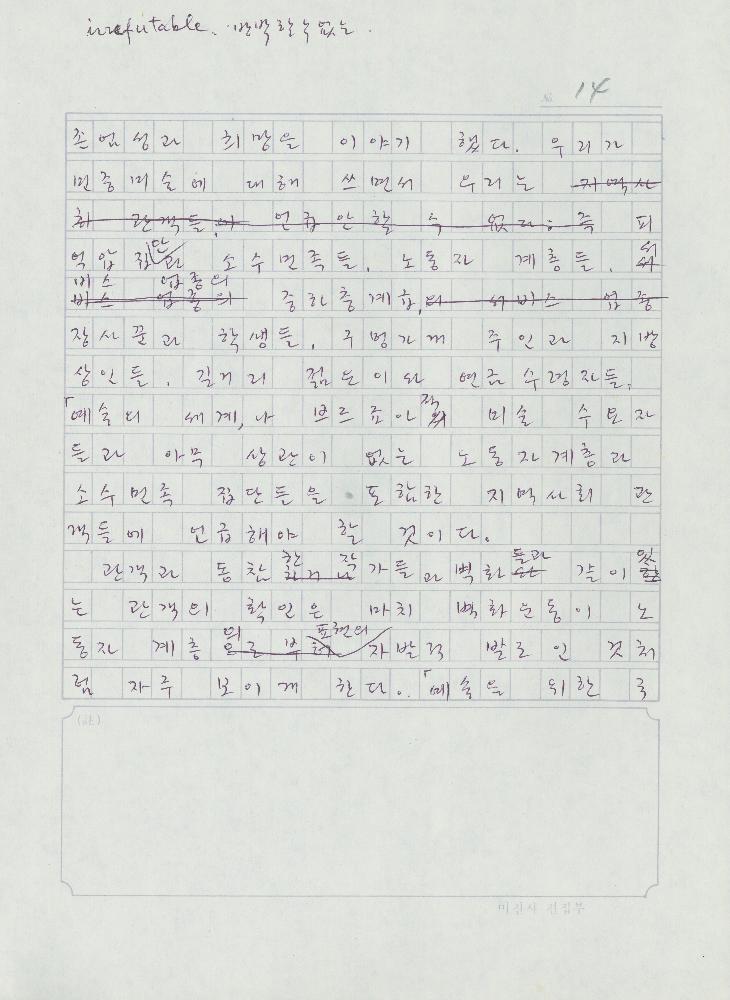 irrefutable. 반박할 수 없는.
No 14
존엄성과 희망을 이야기 했다. 우리가
민중미술에 대해 쓰면서 우리는 지역사
회 관객들, 언급안할 수 없다: 즉 피
억압 집단과 소수민족들, 노동자 계층들, 서
비스 업종의
비스 업종의 중하층계급, 서비스 업종
장사꾼과 학생들, 구멍가게 주인과 지방
상인들, 길거리 젊은이와 연금 수령자들,
「예술의 세계」나 브르죠아적 미술 수요자
들과 아무 상관이 없는 노동자계층과
소수민족 집단들을 포함한 지역사회 관
객들에 언급해야 할 것이다.
관객과 동참한 작가들과 벽화들과 같이 있
는 관객의 확인은 마치 벽화운동이 노
동자 계층의 으로부터 표현의 자발적 발로인 것처
럼 자주 보이게 한다.. 「예술을 위한 국
(註)
미진사 편집부